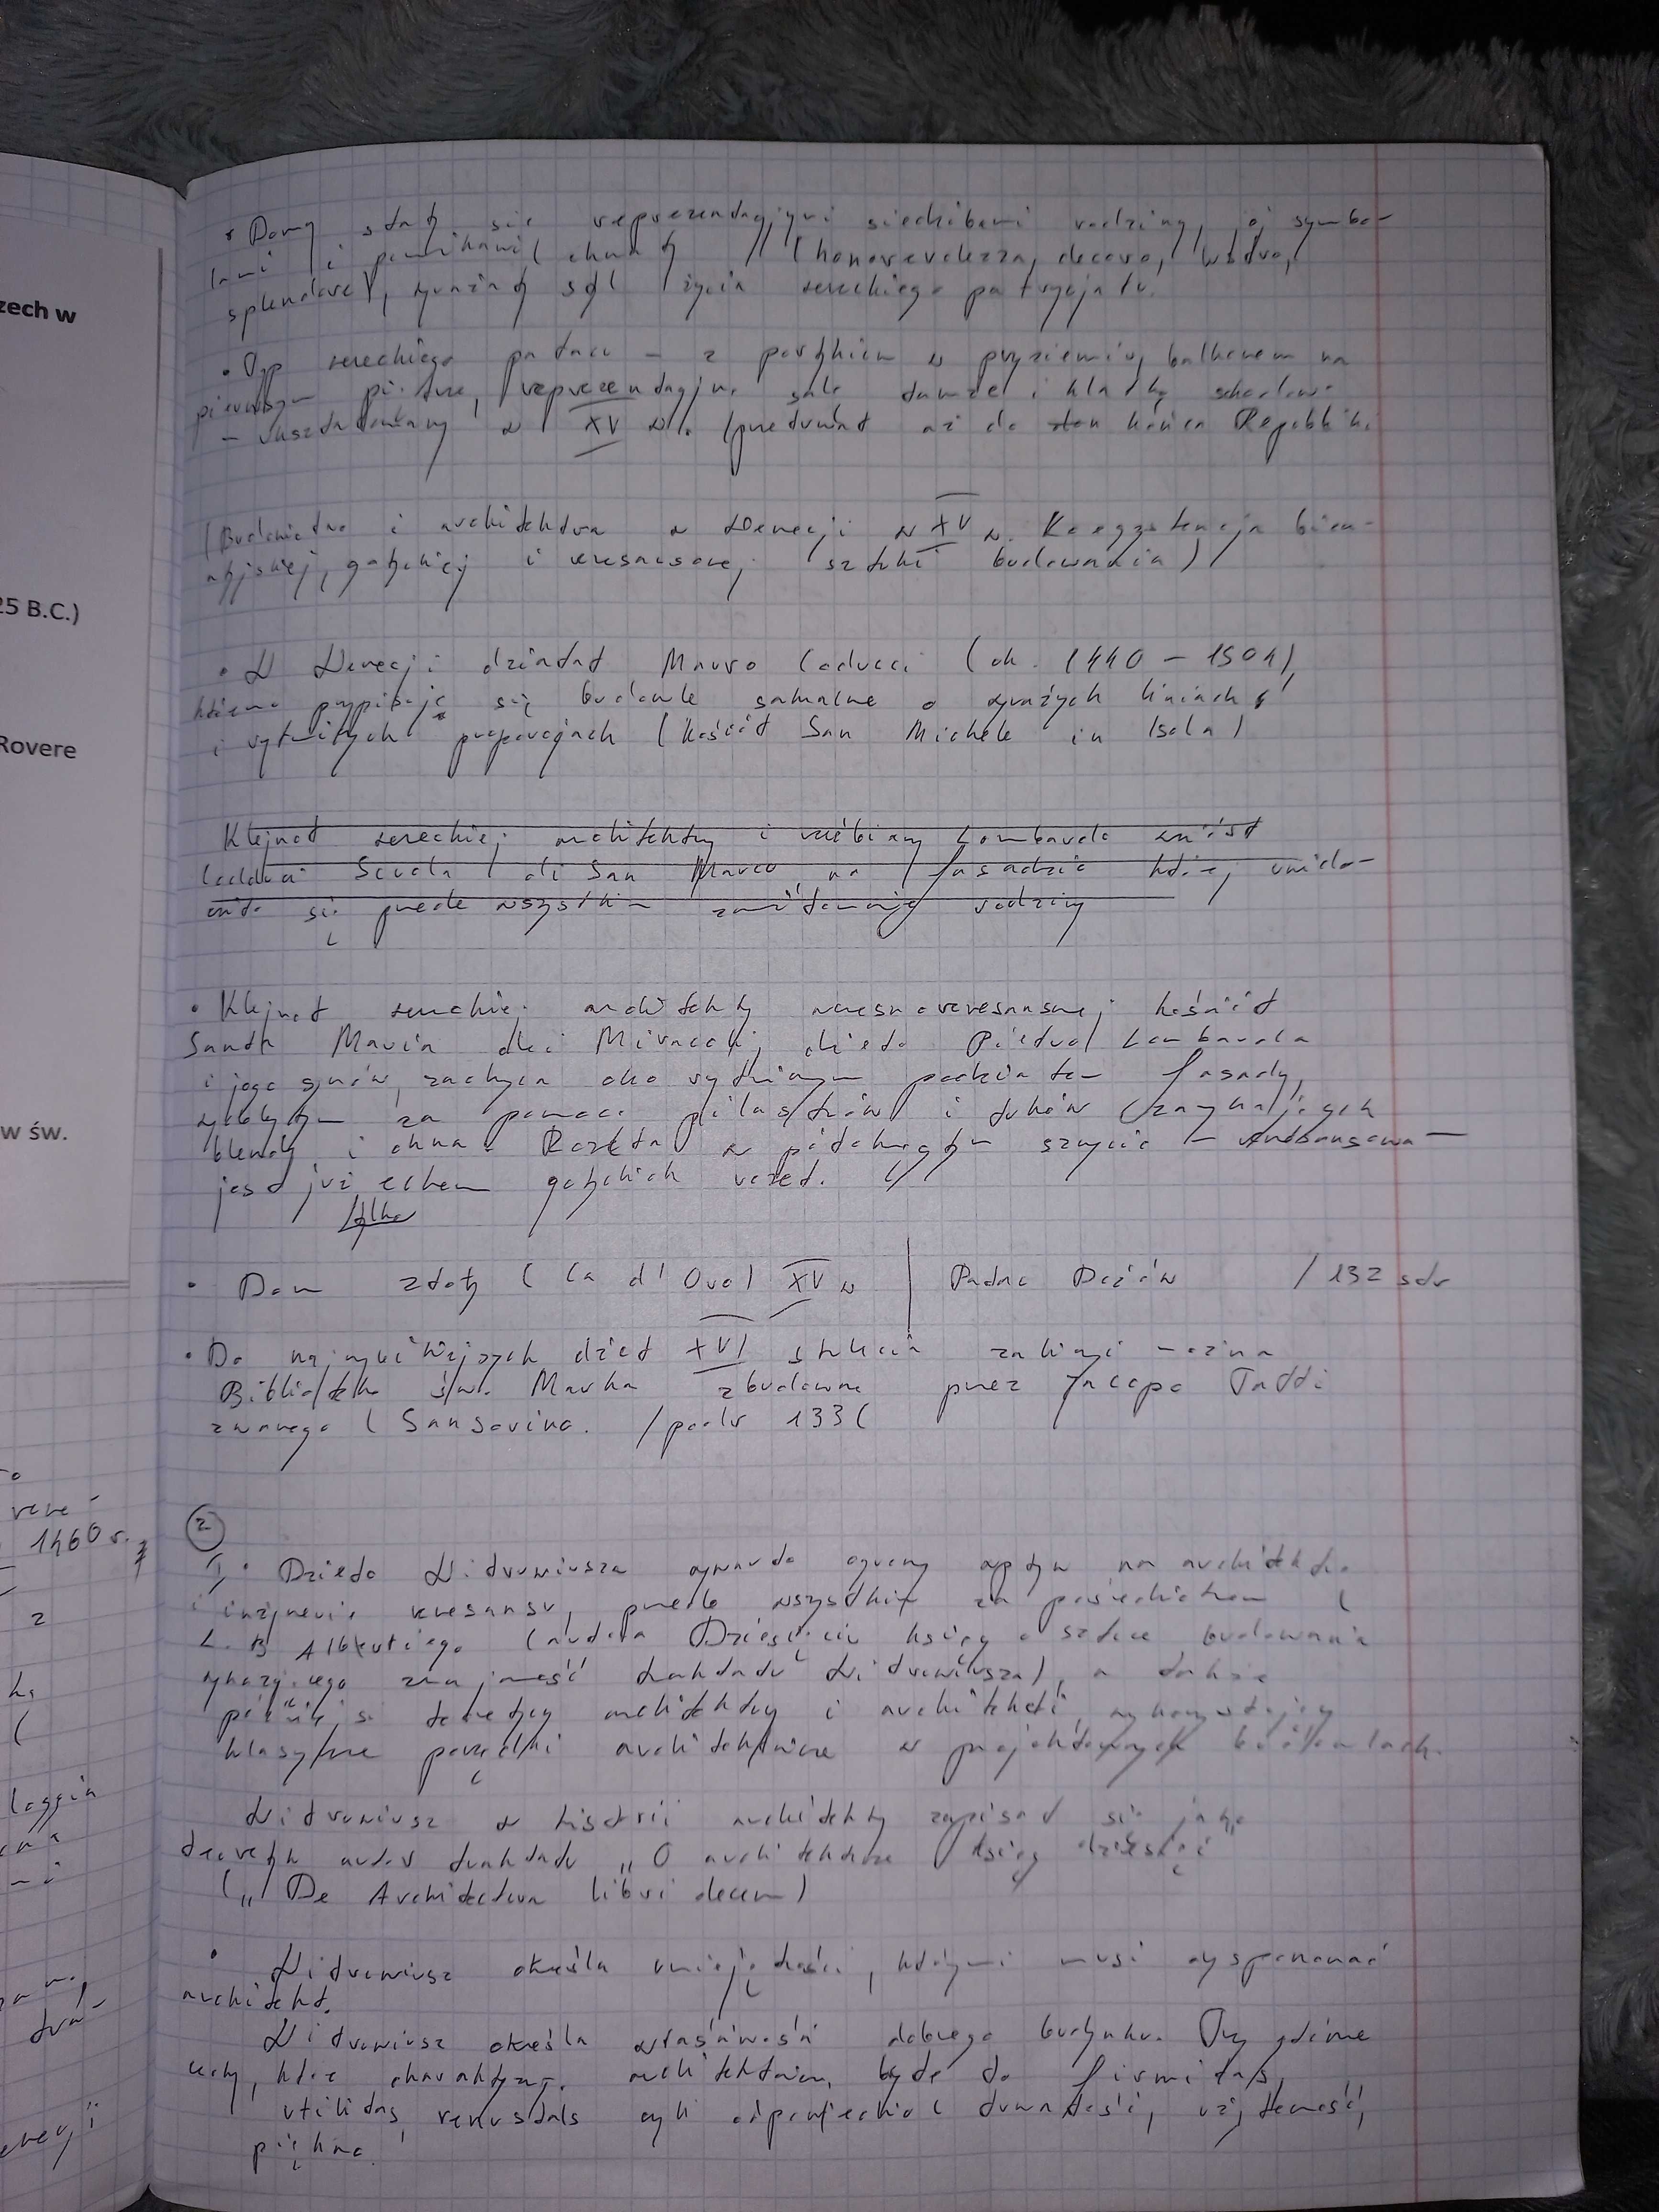 zech w
25 B.C.)
Rovere
w św.
1460 r.
z
loggia
• Domy stały się reprezentacyjnymi siedzibami rodziny, jej symbo-
lami i pomnikami chwały (honorevolezza, decoro,
splendore), wyrażały styl życia weneckiego patrycjatu.
• Typ weneckiego pałacu – z portykiem w przyziemiu, balkonem na
pierwszym piętrze, reprezentacyjną salą tamże i klatką schodową
– ukształtowany w XV w. /przetrwał aż do końca Republiki
(Budownictwo i architektura w Wenecji w XV w. Koegzystencja bizan-
tyjskiej, gotyckiej i renesansowej sztuki budowania)
• W Wenecji działał Mauro Coducci (ok. 1440 – 1504),
któremu przypisuje się budowle sakralne o wyraźnych liniach
i wybitnych proporcjach (kościół San Michele in Isola)
Klejnot weneckiej architektury i rzeźbiarzy Lombardo wzniósł
Coducci Scuola di San Marco na fasadzie której uwido-
się przede wszystkim rodziny
• Klejnot weneckiej architektury wczesnorenesansowej kościół
Santa Maria dei Miracoli, dzieło Pietro Lombarda
i jego synów, zachyca oko wybitnym podziałem fasady,
za pomocą pilastrów i łuków zamykających
blendy i okna. Rozeta w półokrągłym szczycie –
jest już echem gotyckich rozet.
/tylko
• Dom złoty (Ca d'Oro) XV w | Pałac Dożów /132 str
• Do najwybitniejszych dzieł XVI stulecia zaliczyć można
Biblioteka św. Marka zbudowana przez Jacopo Tatti
zwanego Sansovino. /podr 133(
2
I • Dzieło Witruwiusza wywarło ogromny wpływ na architekturę
i inżynierię renesansu, przede wszystkim za pośrednictwem
L. B Albertiego (autora Dziesięciu ksiąg o sztuce budowania
wykazującego znajomość traktatu Witruwiusza), a także
późniejsi teoretycy architektury i architekci, wykorzystujący
klasyczne porządki architektoniczne w projektowanych budowlach.
Witruwiusz w historii architektury zapisał się jako
teoretyk autor traktatu „O architekturze ksiąg dziesięć"
(„De Architectura libri decem)
• Witruwiusz określa umiejętności, którymi musi dysponować
architekt.
Witruwiusz określa właściwości dobrego budynku. Trzy główne
cechy, które charakteryzują architekturę, będą to firmitas,
utilitas, venustats czyli odpowiednio trwałość, użyteczność,
piękno.